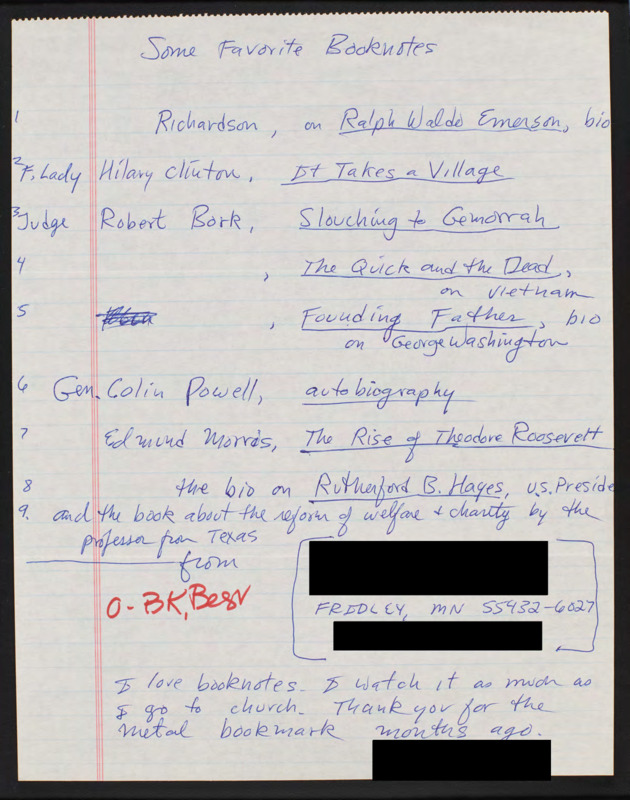 Some Favorite Booknotes
1 Richardson, on Ralph Waldo Emerson, bio
2 F. Lady Hilary Clinton, It Takes a Village
3 Judge Robert Bork, Slouching to Gemorrah
4 , The Quick and the Dead,
on Vietnam
5 , Founding Father, bio
on George Washington
6 Gen. Colin Powell, autobiography
7 Edmund Morris, The Rise of Theodore Roosevelt
8 the bio on Rutherford B. Hayes, U.S. Preside
9. and the book about the reform of welfare + charity by the
professor from Texas
from
O-BK, Best
FRIDLEY, MN 55432-6027
I love booknotes. I watch it as much as
I go to church. Thank you for the
metal bookmark months ago.